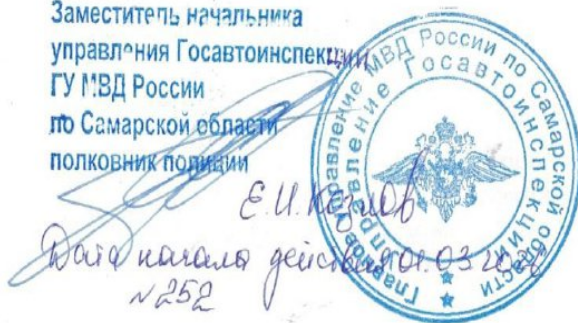 Заместитель начальника
управления Госавтоинспекции
ГУ МВД России
по Самарской области
полковник полиции
Е.И. Козлов
Дата начала действия 01.03
№252
Главное управление МВД России по Самарской области
Управление Госавтоинспекции